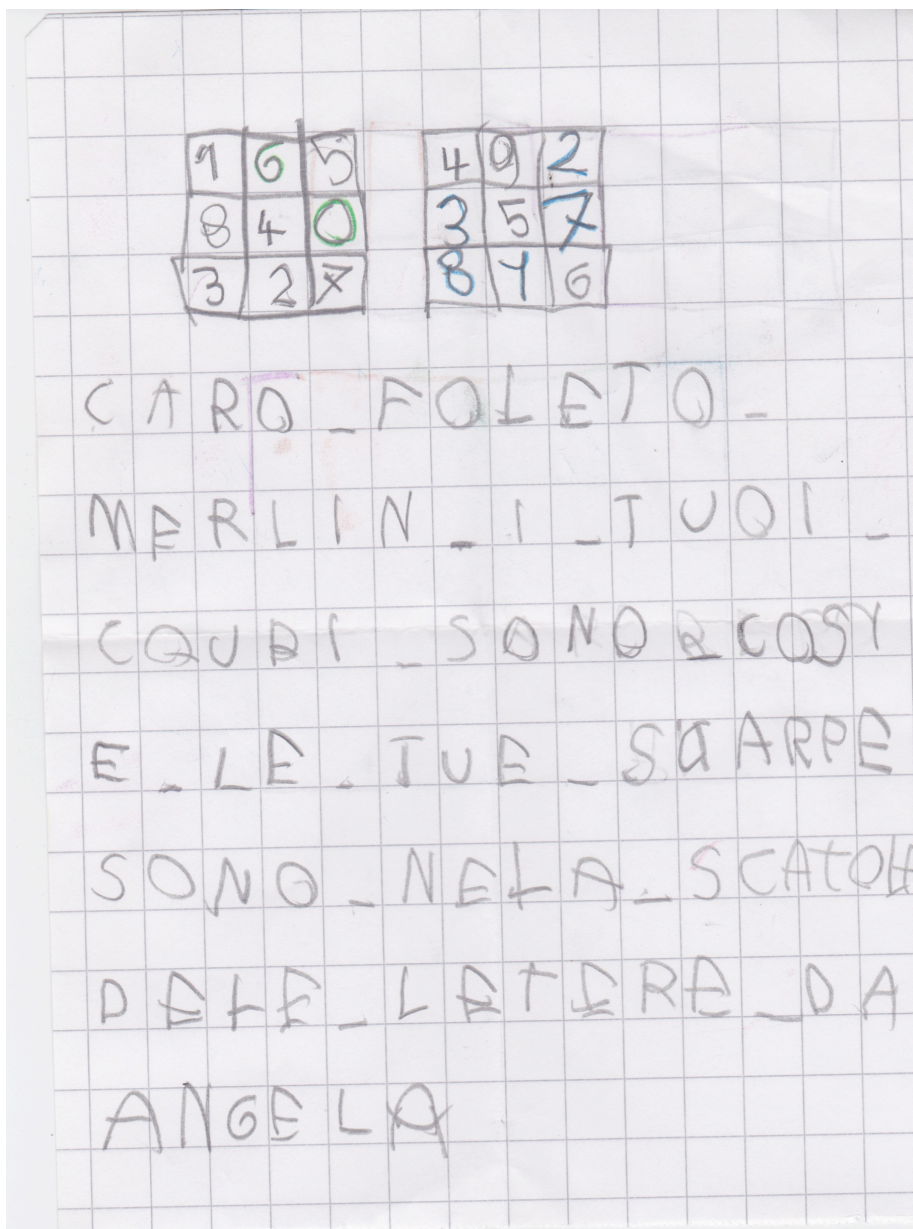 1 6 5 4 9 2
8 4 0 3 5 7
3 2 7 8 1 6
CARO_FOLETO_
MERLIN_I_TUOI_
CQUBI_SONO_COSI
E_LE_TUE_SCARPE
SONO_NELA_SCATOLA
DELE_LETERE_DA
ANGELA